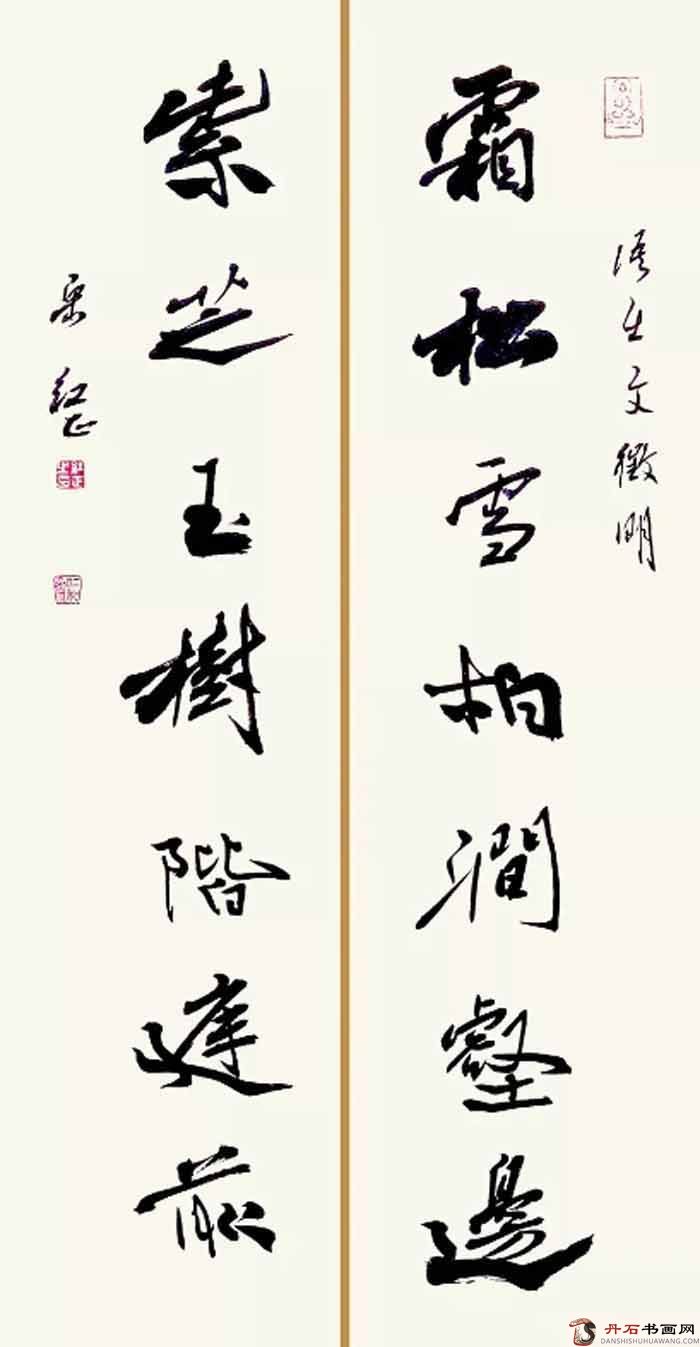 语出文徵明
霜松雪柏澗壑邊
紫芝玉樹階庭前
丹石书画网
DANSHISHUHUAWANG.COM